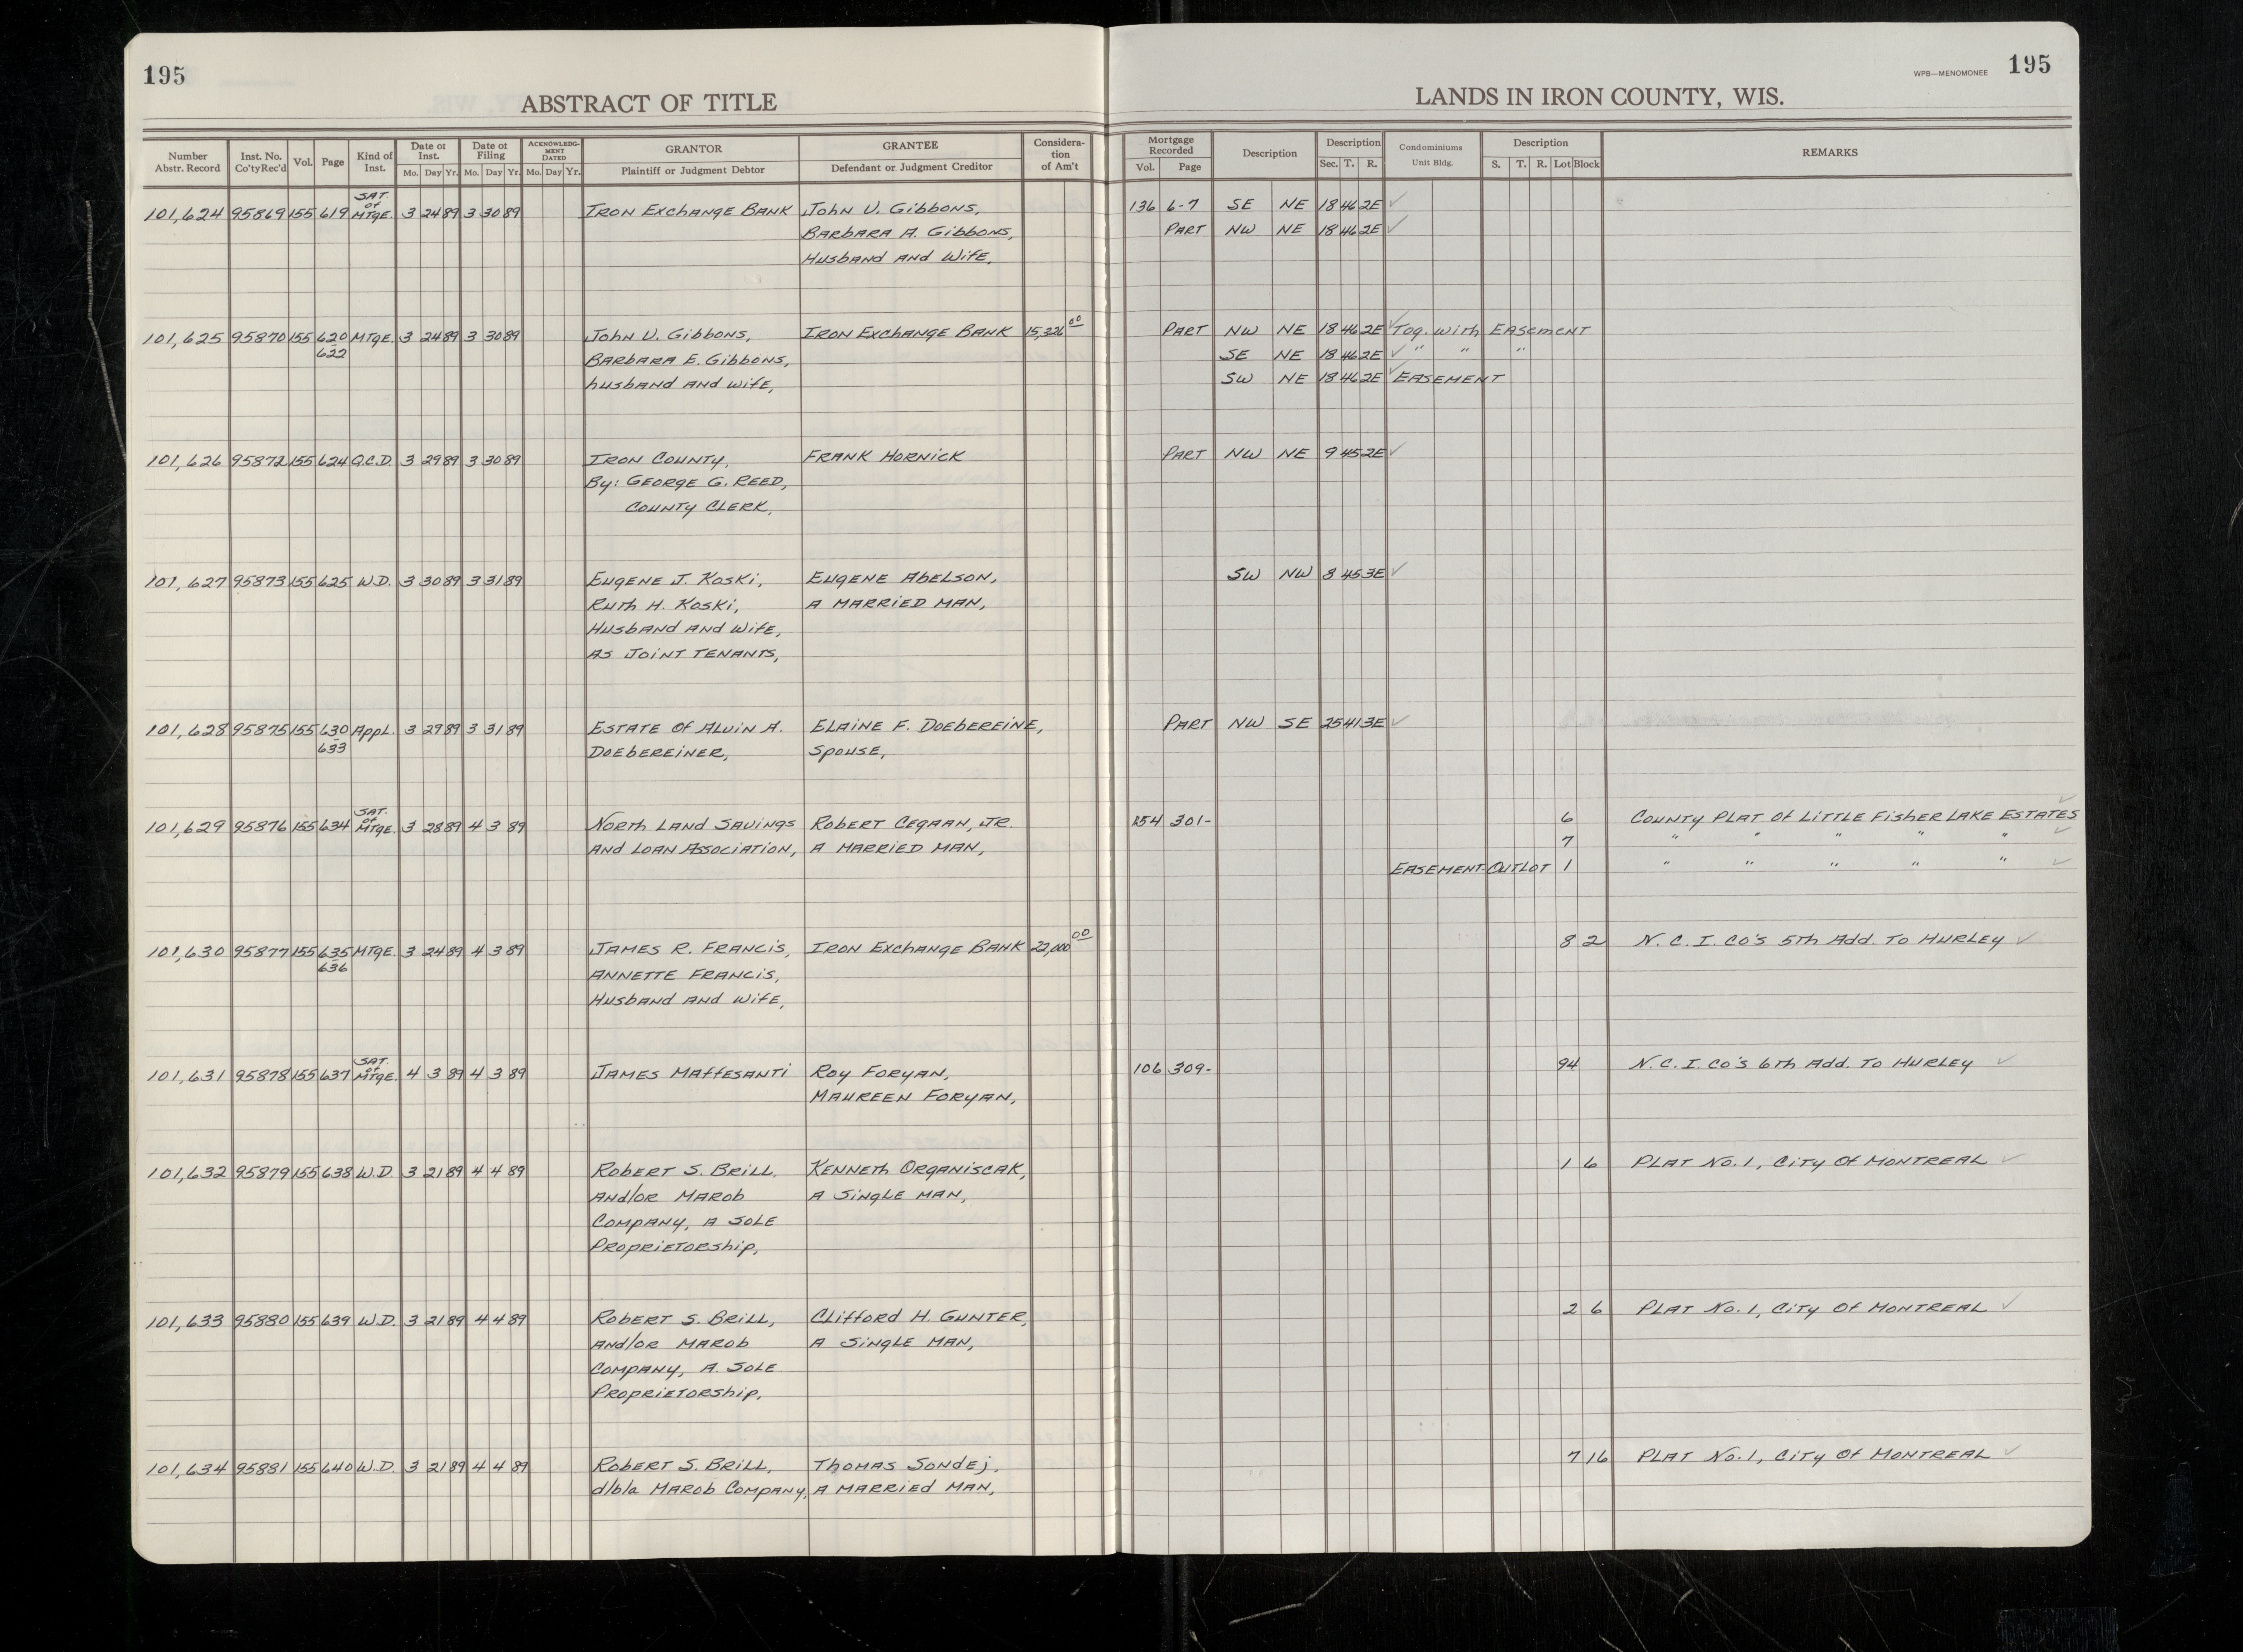 195
ABSTRACT OF TITLE
Number Abstr. Record Inst. No. Co'tyRec'd Vol. Page Kind of Inst. Date of Inst. Mo. Day Yr. Date of Filing Mo. Day Yr. ACKNOWLEDGMENT DATED Mo. Day Yr. GRANTOR Plaintiff or Judgment Debtor GRANTEE Defendant or Judgment Creditor Consideration of Am't
WPB—MENOMONEE 195
LANDS IN IRON COUNTY, WIS.
Mortgage Recorded Vol. Page Description Description Sec. T. R. Condominiums Unit Bldg. Description S. T. R. Lot Block REMARKS
SAT. of
101,624 95869 155 619 MTGE. 3 24 89 3 30 89 IRON EXCHANGE BANK JOHN V. GIBBONS, 136 6-7 SE NE 18 46 2E ✓
BARBARA A. GIBBONS, PART NW NE 18 46 2E ✓
HUSBAND AND WIFE,
101,625 95870 155 620 MTGE. 3 24 89 3 30 89 JOHN V. GIBBONS, IRON EXCHANGE BANK 15,326 00 PART NW NE 18 46 2E ✓ TOG. WITH EASEMENT
622 BARBARA E. GIBBONS, SE NE 18 46 2E ✓ " " "
HUSBAND AND WIFE, SW NE 18 46 2E ✓ EASEMENT
101,626 95872 155 624 Q.C.D. 3 29 89 3 30 89 IRON COUNTY, FRANK HORNICK PART NW NE 9 45 2E ✓
BY: GEORGE G. REED,
COUNTY CLERK,
101,627 95873 155 625 W.D. 3 30 89 3 31 89 EUGENE J. KOSKI, EUGENE ABELSON, SW NW 8 45 3E ✓
RUTH H. KOSKI, A MARRIED MAN,
HUSBAND AND WIFE,
AS JOINT TENANTS,
101,628 95875 155 630 APPL. 3 29 89 3 31 89 ESTATE OF ALVIN A. ELAINE F. DOEBEREINE, PART NW SE 25 41 3E ✓
633 DOEBEREINER, SPOUSE,
SAT. of
101,629 95876 155 634 MTGE. 3 28 89 4 3 89 NORTH LAND SAVINGS ROBERT CEGAAN, JR. 154 301- 6 COUNTY PLAT OF LITTLE FISHER LAKE ESTATES ✓
AND LOAN ASSOCIATION, A MARRIED MAN, 7 " " " " " ✓
EASEMENT-OUTLOT 1 " " " " " ✓
101,630 95877 155 635 MTGE. 3 24 89 4 3 89 JAMES R. FRANCIS, IRON EXCHANGE BANK 22,000 00 8 2 N. C. I. CO'S 5TH ADD. TO HURLEY ✓
636 ANNETTE FRANCIS,
HUSBAND AND WIFE,
SAT. of
101,631 95878 155 637 MTGE. 4 3 89 4 3 89 JAMES MAFFESANTI ROY FORYAN, 106 309- 94 N. C. I. CO'S 6TH ADD. TO HURLEY ✓
MAUREEN FORYAN,
101,632 95879 155 638 W.D 3 21 89 4 4 89 ROBERT S. BRILL. KENNETH ORGANISCAK, 1 6 PLAT NO. 1, CITY OF MONTREAL ✓
AND/OR MAROB A SINGLE MAN,
COMPANY, A SOLE
PROPRIETORSHIP,
101,633 95880 155 639 W.D. 3 21 89 4 4 89 ROBERT S. BRILL, CLIFFORD H. GUNTER, 2 6 PLAT NO. 1, CITY OF MONTREAL ✓
AND/OR MAROB A SINGLE MAN,
COMPANY, A. SOLE
PROPRIETORSHIP,
101,634 95881 155 640 W.D. 3 21 89 4 4 89 ROBERT S. BRILL, THOMAS SONDEJ, 7 16 PLAT NO. 1, CITY OF MONTREAL ✓
d/b/a MAROB COMPANY, A MARRIED MAN,